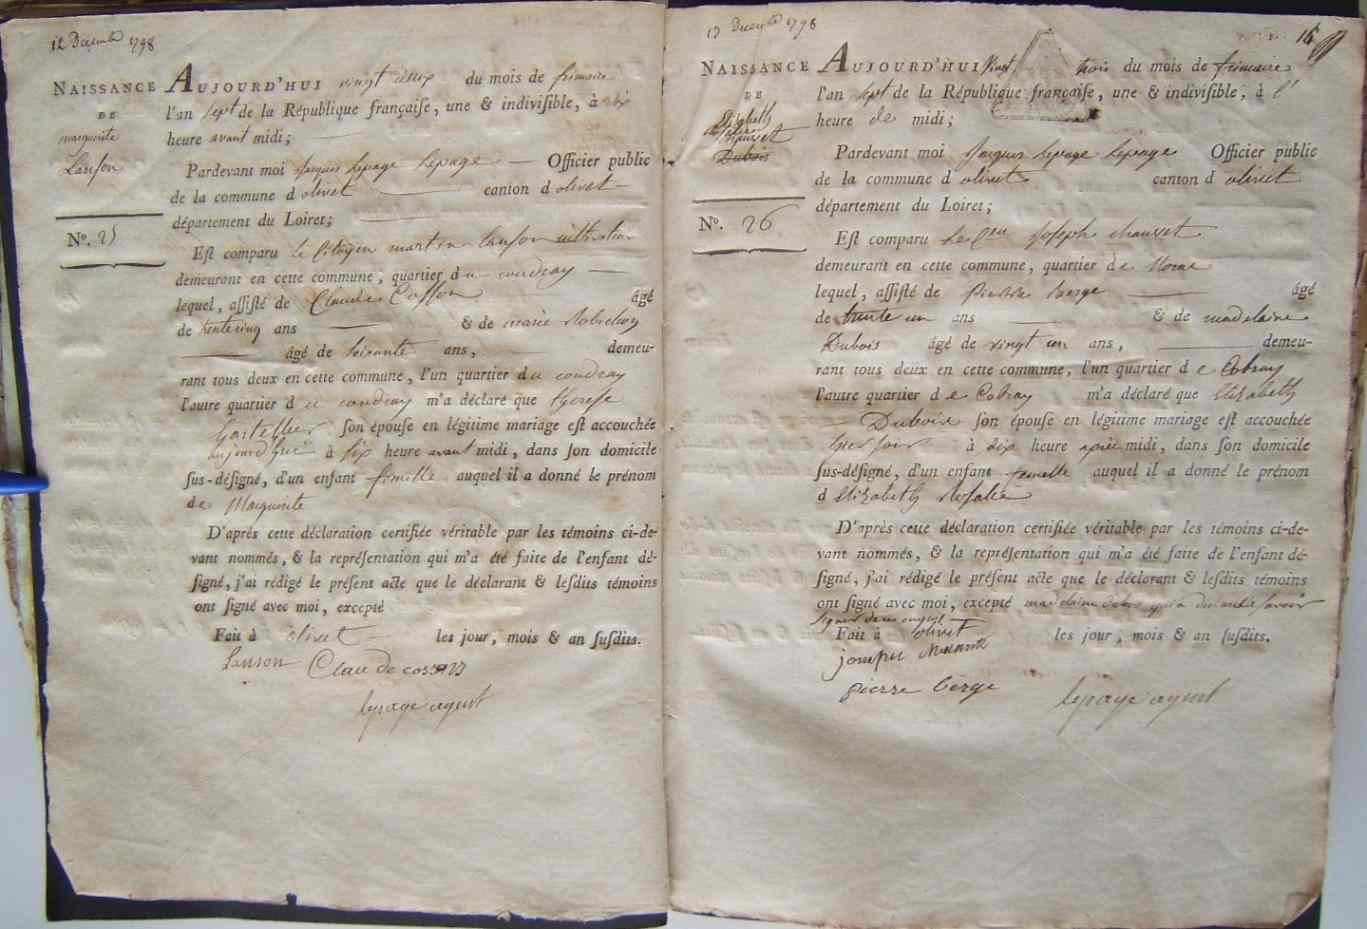 12 Decembre 1798
NAISSANCE
DE
marguerite
Lanson
No. 25
AUJOURD'HUI vingt deux du mois de frimaire
l'an sept de la République françaiſe, une & indiviſible, à dix
heure avant midi;
Pardevant moi Jacques lepage lepage Officier public
de la commune d olivet canton d olivet
département du Loiret;
Eſt comparu le Citoyen martin lanson
demeurant en cette commune, quartier du coudray
lequel, aſſiſté de Claude Cosson âgé
de trente cinq ans & de marie
âgé de soixante ans, demeu-
rant tous deux en cette commune, l'un quartier du coudray
l'autre quartier d u coudray m'a déclaré que therese
ſon épouſe en légitime mariage eſt accouchée
aujourd'hui à six heure avant midi, dans ſon domicile
ſus-déſigné, d'un enfant femelle auquel il a donné le prénom
de Marguerite
D'après cette déclaration certifiée véritable par les témoins ci-de-
vant nommés, & la repréſentation qui m'a été faite de l'enfant dé-
ſigné, j'ai rédigé le préſent acte que le déclarant & leſdits témoins
ont ſigné avec moi, excepté
Fait à olivet les jour, mois & an ſuſdits.
Lanson Claude cosson
lepage agent
13 Decembre 1798
16
NAISSANCE
DE
Elizabeth
chauvet
Dubois
No. 26
AUJOURD'HUI vingt trois du mois de frimaire
l'an sept de la République françaiſe, une & indiviſible, à l'
heure de midi;
Pardevant moi Jacques lepage lepage Officier public
de la commune d olivet canton d olivet
département du Loiret;
Eſt comparu Le Cen Joseph chauvet
demeurant en cette commune, quartier de
lequel, aſſiſté de Pierre berge âgé
de trente un ans & de madelaine
Dubois âgé de vingt un ans, demeu-
rant tous deux en cette commune, l'un quartier d e Cobray
l'autre quartier d e Cobray m'a déclaré que Elizabeth
Dubois ſon épouſe en légitime mariage eſt accouchée
hier soir à dix heure après midi, dans ſon domicile
ſus-déſigné, d'un enfant femelle auquel il a donné le prénom
d Elizabeth Rosalie
D'après cette déclaration certifiée véritable par les témoins ci-de-
vant nommés, & la repréſentation qui m'a été faite de l'enfant dé-
ſigné, j'ai rédigé le préſent acte que le déclarant & leſdits témoins
ont ſigné avec moi, excepté madelaine dubois qui a declaré ne savoir
signer de ce enquis
Fait à olivet les jour, mois & an ſuſdits.
joseph chauvet
pierre berge
lepage agent